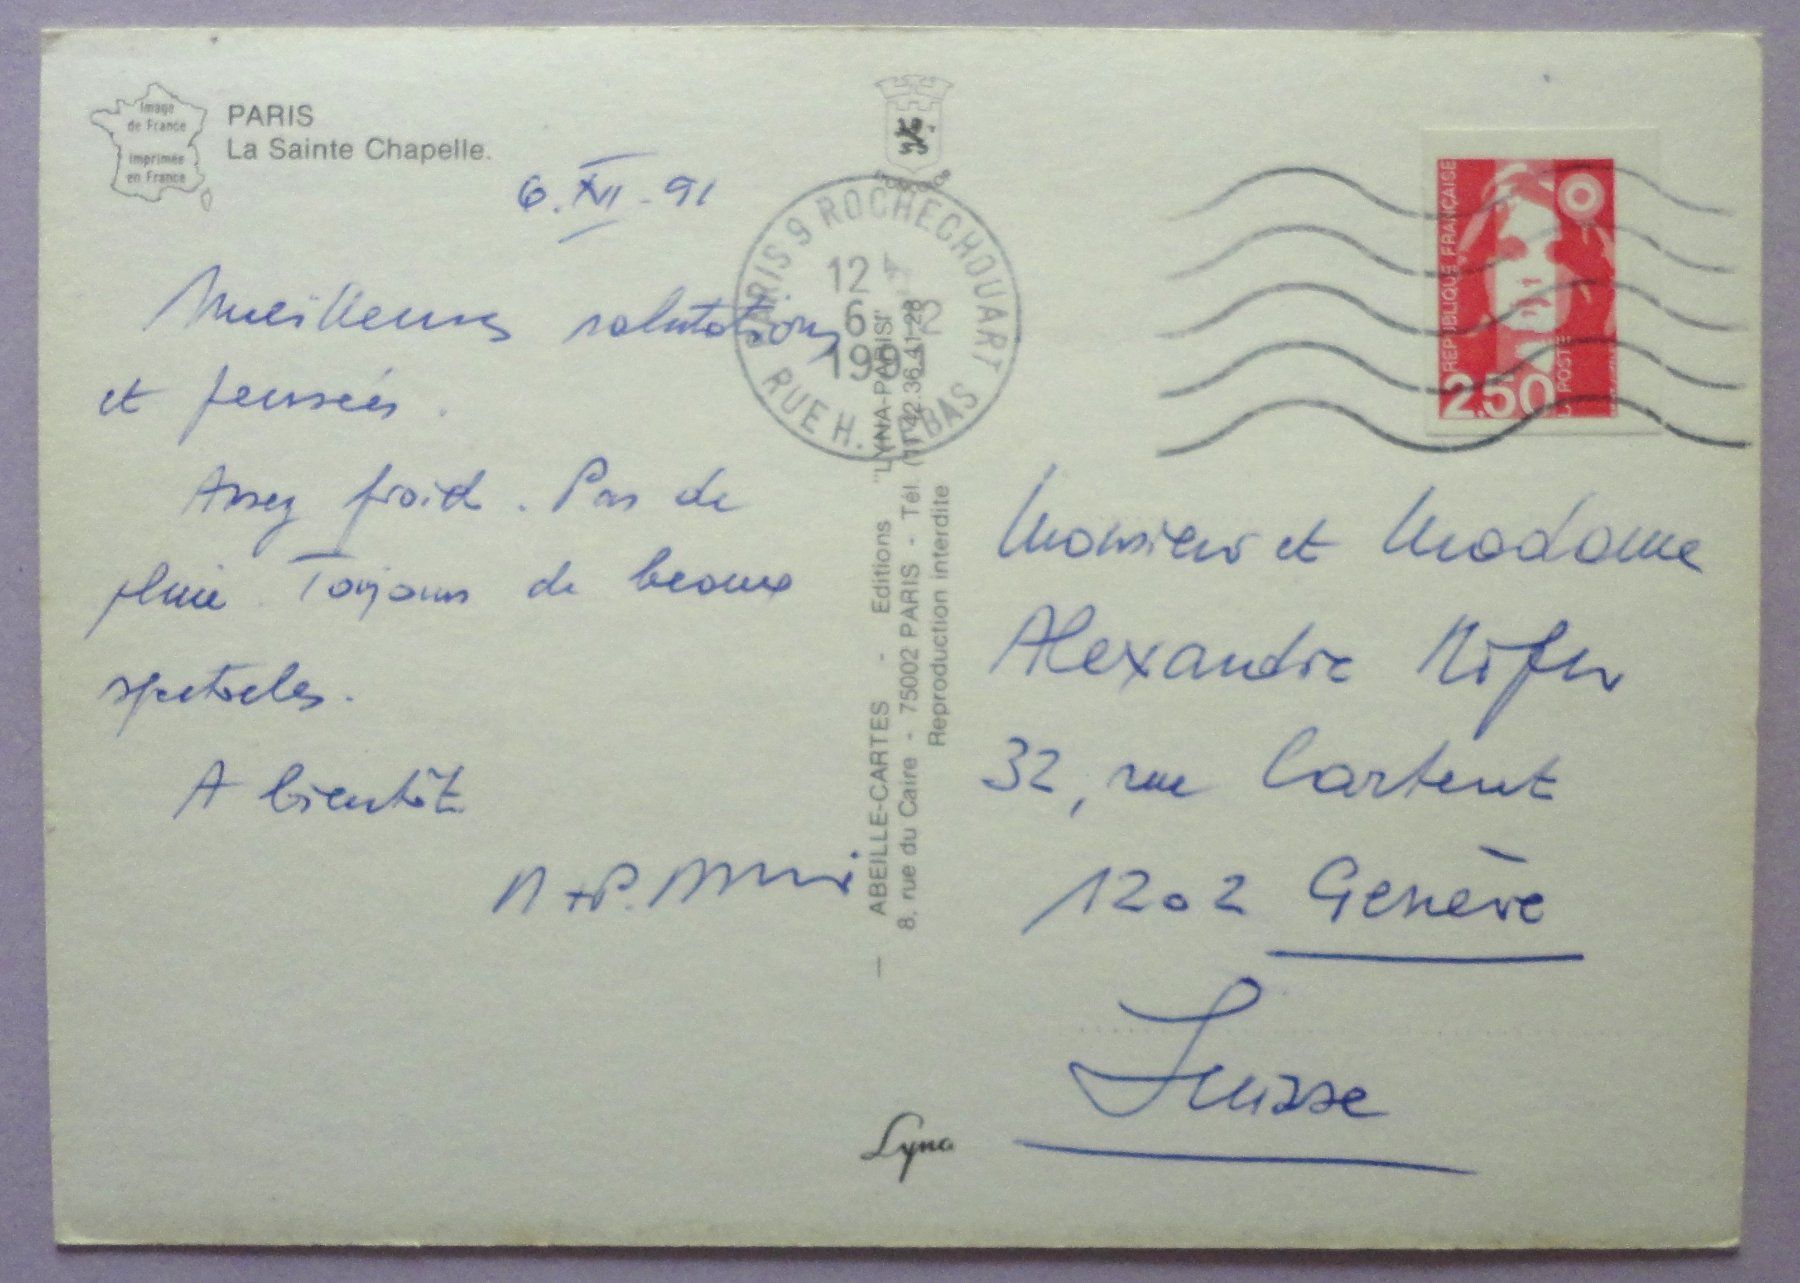 Image
de France
imprimée
en France
PARIS
La Sainte Chapelle.
6. XII - 91
Meilleures salutations
et pensées.
Assez froid. Pas de
pluie. Toujours de beaux
spectacles.
A bientôt
ABEILLE-CARTES - Editions "LYNA-PARIS"
8, rue du Caire - 75002 PARIS - Tél. (1) 42.36.41.28
Reproduction interdite
Lyna
PARIS 9 ROCHECHOUART
12
6 12
1991
RUE H.
REPUBLIQUE FRANÇAISE
2,50
LA POSTE
Monsieur et Madame
Alexandre
32, rue
1202 Genève
Suisse